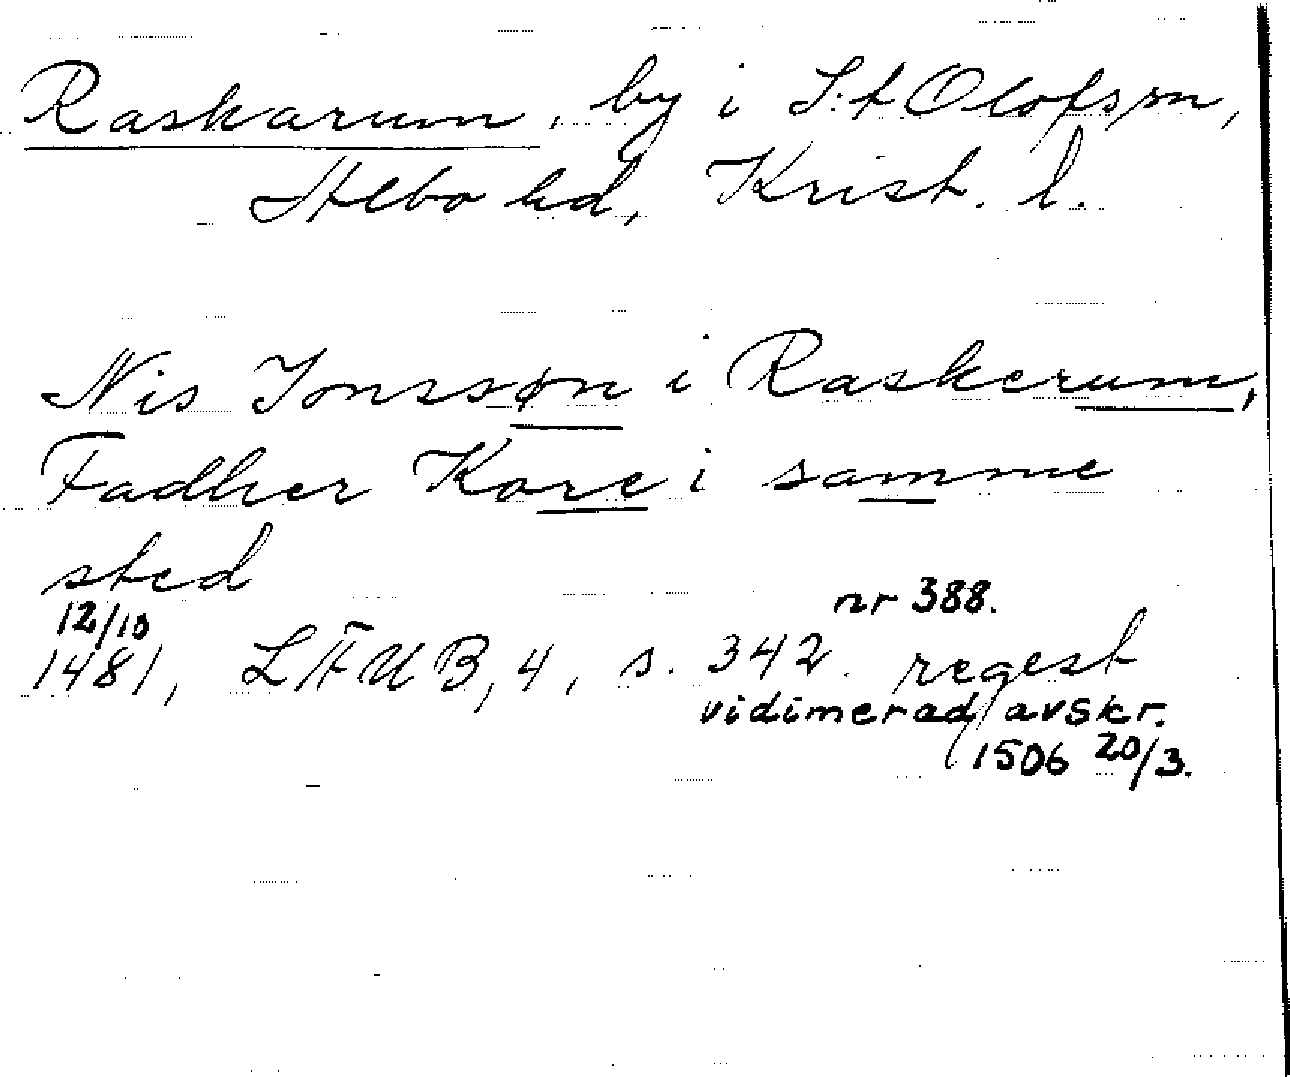 Raskarum, by i S:t Olofs sn,
Albo hd, Krist. l.
Nis Jonssøn i Raskerum,
Fadher Kore i samme
sted
12/10 nr 388.
1481, LÆUB, 4, s. 342. regest
vidimerad avskr.
1506 20/3.